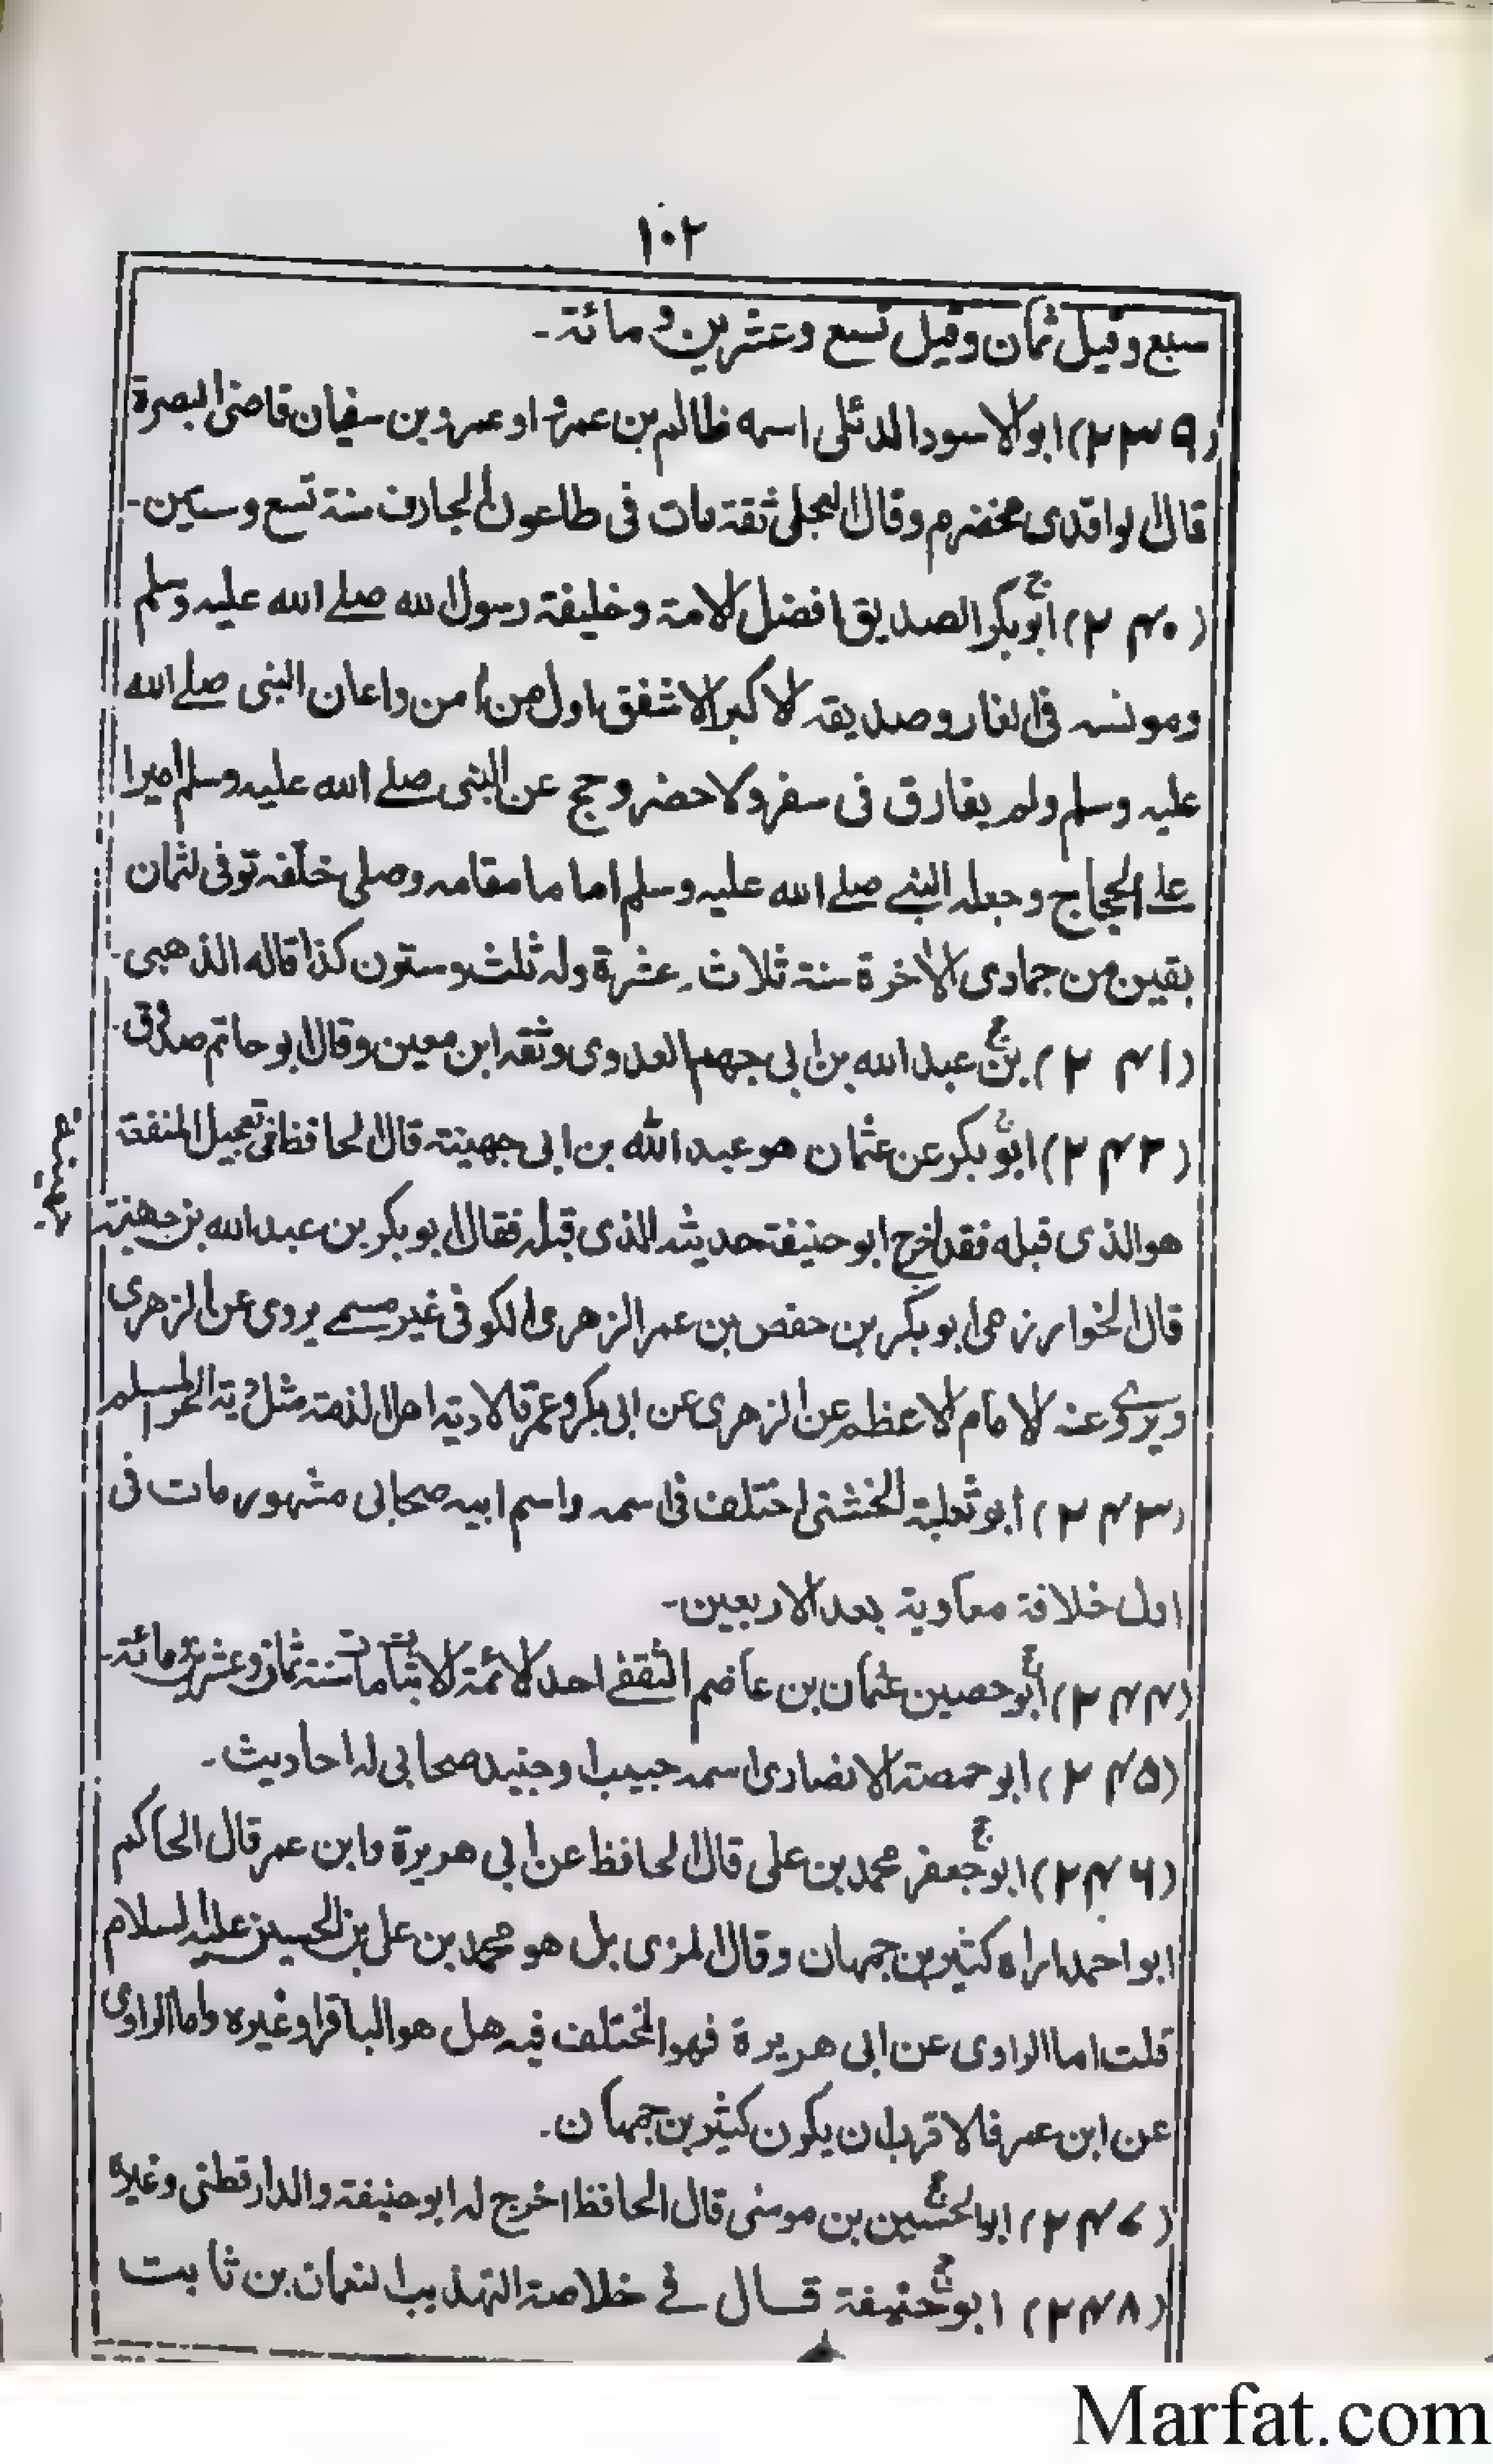 ١٠٢
سبع وقيل ثمان وقيل تسع وعشرين ومائة۔
(٢٣٩) ابوالاسود الدئلى اسمه ظالم بن عمرو او عمرو بن سفيان قاضى البصرة
قال الواقدى مخضرم وقال العجلى ثقة مات فى طاعون الجارف سنة تسع وستين۔
(٢٤٠) ابوبكر الصديق افضل الامة وخليفة رسول الله صلے الله عليه وسلم
ومونسه فى الغار وصديقه الاكبر الاشفق اول من امن واعان النبى صلے الله
عليه وسلم ولم يفارق فى سفر ولا حضر وحج عن النبى صلے الله عليه وسلم اميرا
علے الحجاج وجعله النبے صلے الله عليه وسلم اماما مقامه وصلى خلفه توفى لثمان
بقين من جمادى الاخرة سنة ثلاث عشرة وله ثلث وستون كذا قاله الذهبى۔
(٢٤١) بن عبد الله بن ابى جهم العدوى وثقه ابن معين وقال ابو حاتم صدوق۔
(٢٤٢) ابو بكر عن عثمان هو عبد الله بن ابى جهينة قال الحافظ فى تعجيل المنفعة
هو الذى قبله فقد اخرج ابو حنيفة حديثه الذى قبله فقال ابو بكر بن عبد الله بن جهينة
قال الخوارزمى ابو بكر بن حفص بن عمر الزهرى الكوفى غير مسمے يروى عن الزهرى
ويروے عنه الامام الاعظم عن الزهرى عن ابى بكر وعمر قالا دية اهل الذمة مثل دية الحر المسلم
(٢٤٣) ابو ثعلبة الخشنى اختلف فى اسمه واسم ابيه صحابى مشهور مات فى
اول خلافة معاوية بعد الاربعين۔
(٢٤٤) ابو حصين عثمان بن عاصم الثقفے احد الائمة الاثبات مات سنة ثمان وعشرين ومائة۔
(٢٤٥) ابو حمصة الانصارى اسمه حبيب او جنيد صحابى له احاديث۔
(٢٤٦) ابو جعفر محمد بن على قال الحافظ عن ابى هريرة وابن عمر قال الحاكم
ابو احمد اراه كثير بن جمهان وقال المزى بل هو محمد بن على بن الحسين عليه السلام
قلت اما الراوى عن ابى هريرة فهو المختلف فيه هل هو الباقر او غيره واما الراوى
عن ابن عمر فالاقرب ان يكون كثير بن جمهان۔
(٢٤٧) ابو الحسين بن موسى قال الحافظ اخرج له ابو حنيفة والدارقطنى وغيره
(٢٤٨) ابو حنيفة قال فے خلاصة التهذيب النعمان بن ثابت
Marfat.com